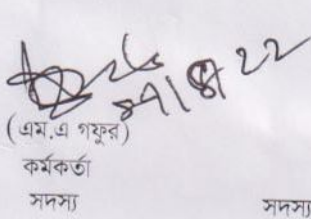 (এম.এ গফুর)
কর্মকর্তা
সদস্য সদস্য